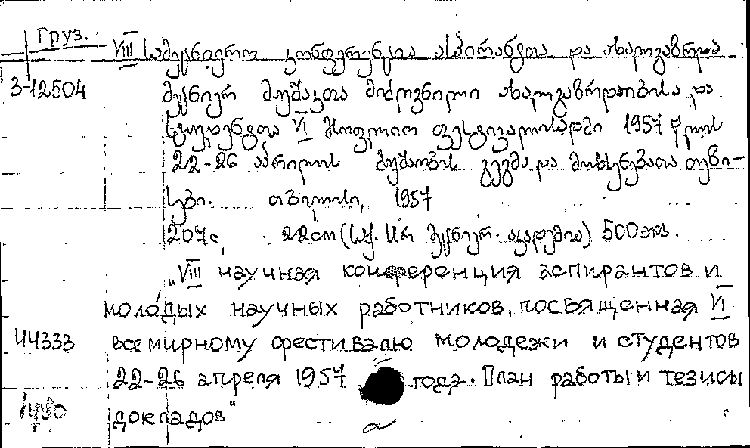 Груз.
VIII სამეცნიერო კონფერენცია ასპირანტთა და ახალგაზრდა
3-12504 მეცნიერ მუშაკთა მიძღვნილი ახალგაზრდობისა და
სტუდენტთა VI მსოფლიო ფესტივალისადმი 1957 წლის
22-26 აპრილის მუშაობის გეგმა და მოხსენებათა თეზი-
სები. თბილისი, 1957
207с. 22см (საქ. სსრ მეცნიერ. აკადემია) 500 ეგზ.
„VIII научная конференция аспирантов и
молодых научных работников, посвященная VI
44333 всемирному фестивалю молодежи и студентов
22-26 апреля 1957 года. План работы и тезисы
докладов"